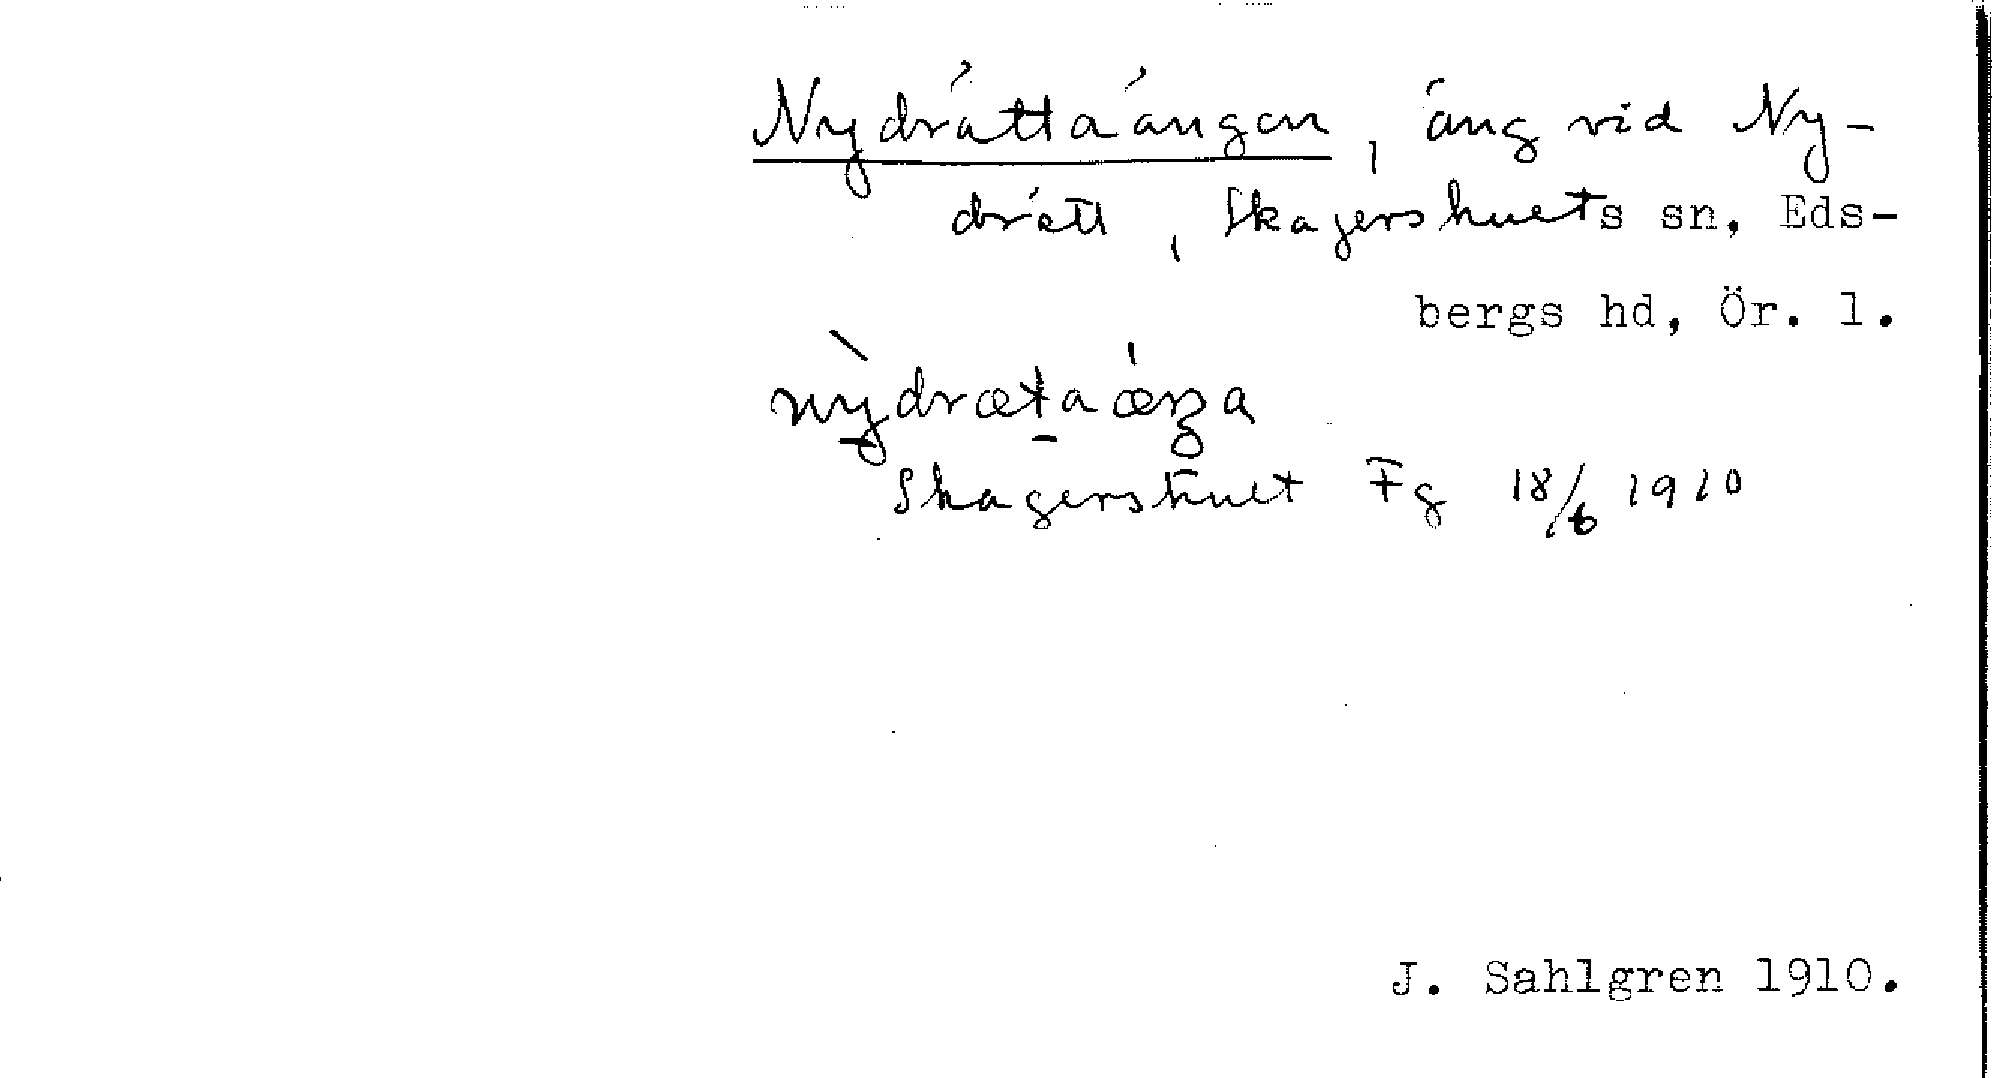 Nydrättaängen, äng vid Ny-
drätt, Skagershults sn, Eds-
bergs hd, Ör. l.
nỳdrætaæŋa
Skagershult Fg 18/6 1910
J. Sahlgren 1910.